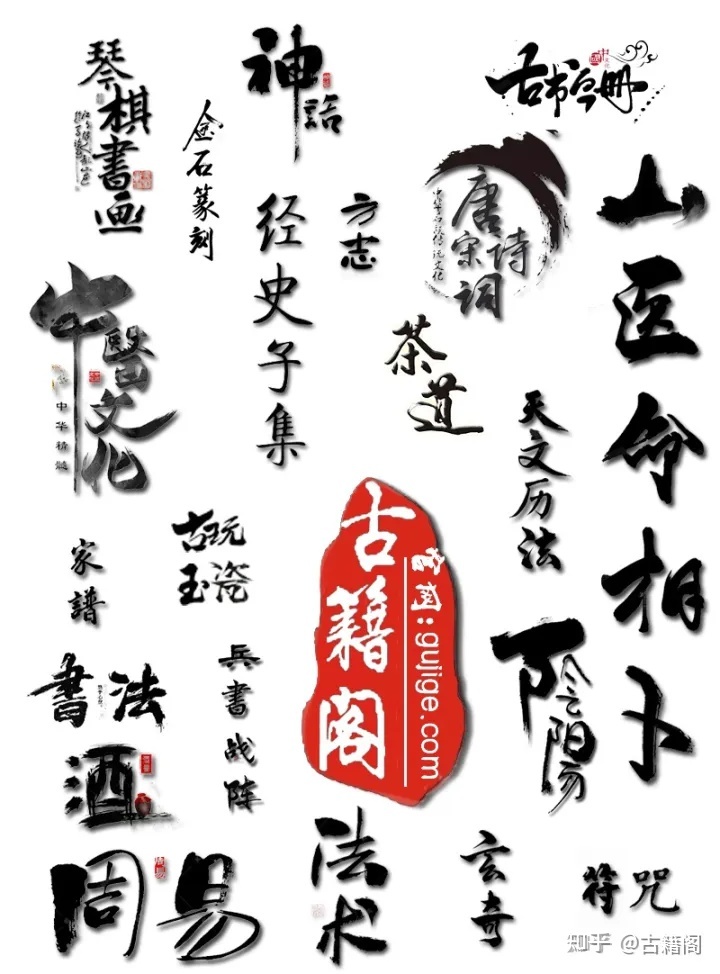 琴棋書画
神話
古书字画册
金石篆刻
经史子集
方志
唐诗
宋词
山医命相卜
中醫文化
中华精髓
茶道
天文历法
古籍阁
官网:gujige.com
古玩
玉瓷
家譜
書法
兵書战阵
陰陽
酒
周易
法术
玄奇
符咒
知乎 @古籍阁